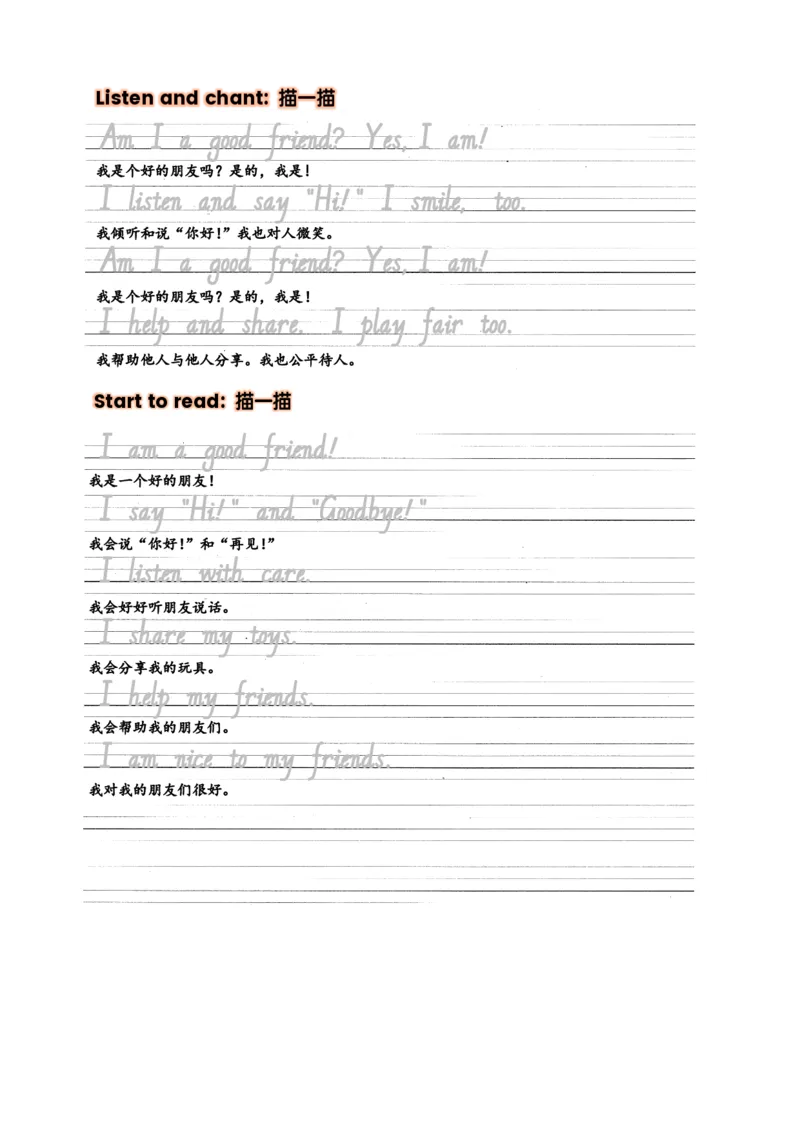 Listen and chant: 描一描
Am I a good friend? Yes, I am!
我是个好的朋友吗？是的，我是！
I listen and say "Hi!" I smile, too.
我倾听和说“你好！”我也对人微笑。
Am I a good friend? Yes, I am!
我是个好的朋友吗？是的，我是！
I help and share. I play fair too.
我帮助他人与他人分享。我也公平待人。
Start to read: 描一描
I am a good friend!
我是一个好的朋友！
I say "Hi!" and "Goodbye!"
我会说“你好！”和“再见！”
I listen with care.
我会好好听朋友说话。
I share my toys.
我会分享我的玩具。
I help my friends.
我会帮助我的朋友们。
I am nice to my friends.
我对我的朋友们很好。